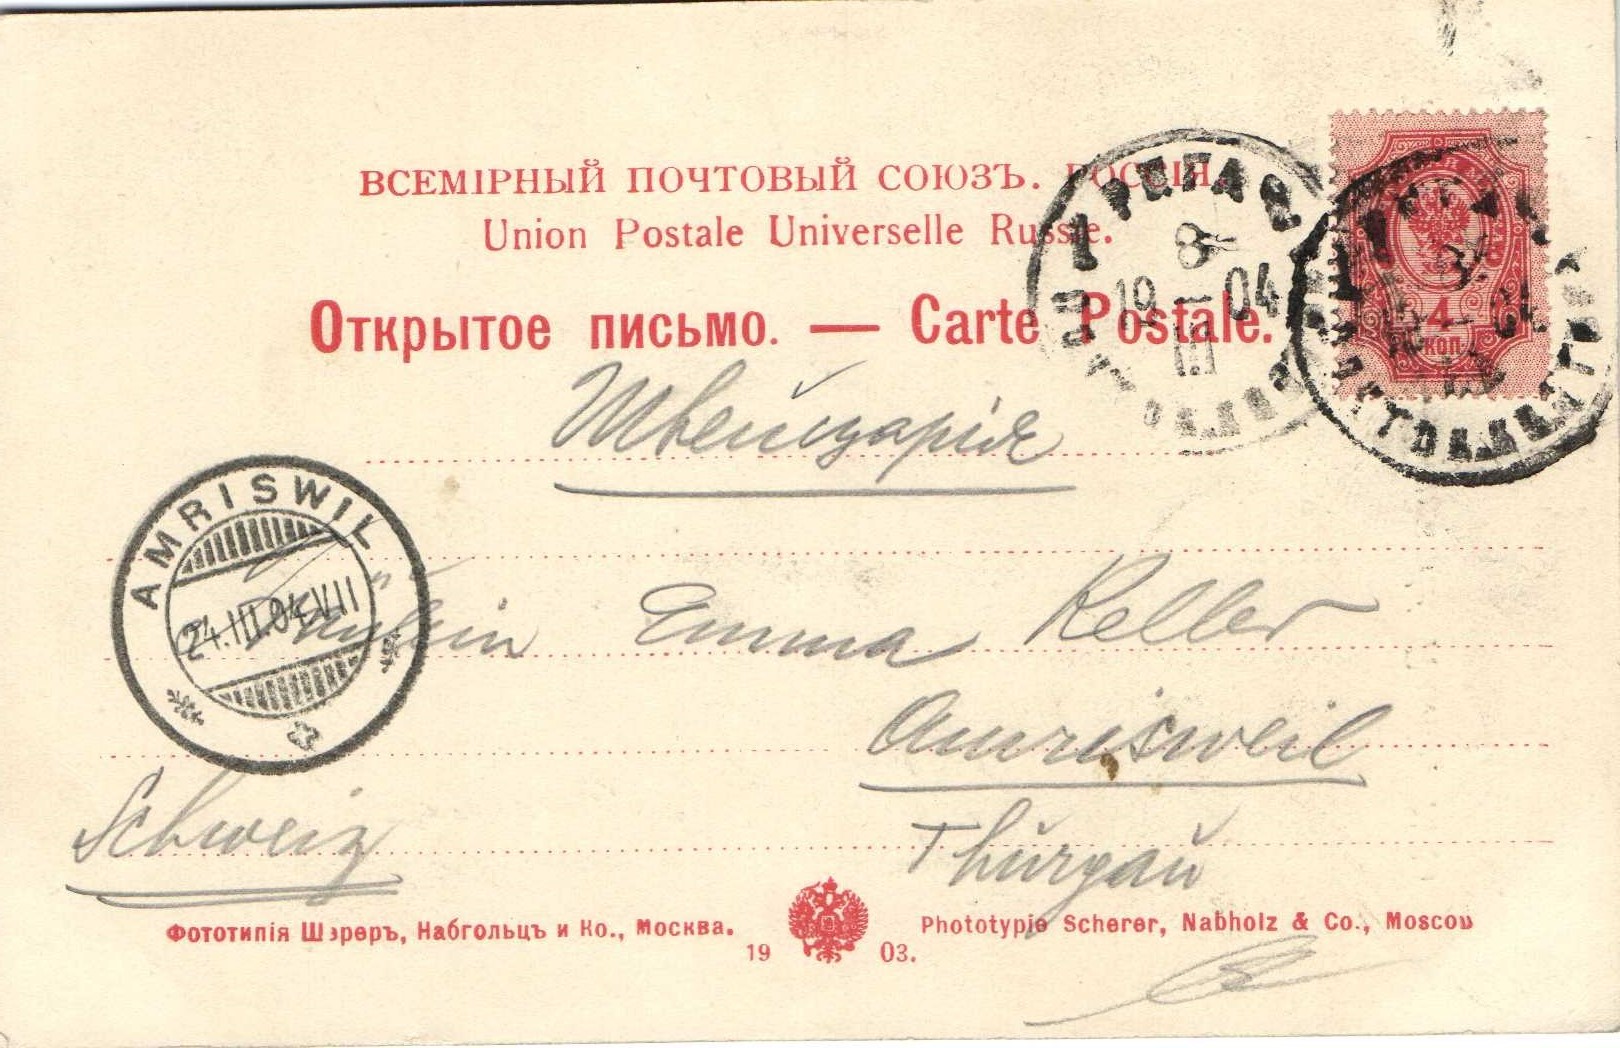 ВСЕМІРНЫЙ ПОЧТОВЫЙ СОЮЗЪ. РОССІЯ.
Union Postale Universelle Russie.
Открытое письмо. — Carte Postale.
8
19 04
III
4
КОП.
Швейцарія
AMRISWIL
24.III.04.VII
Fräulein Emma Keller
Amrisweil
Schweiz
Thŭrgaŭ
Фототипія Шэреръ, Набгольцъ и Ко., Москва.
Phototypie Scherer, Nabholz & Co., Moscou
19 03.